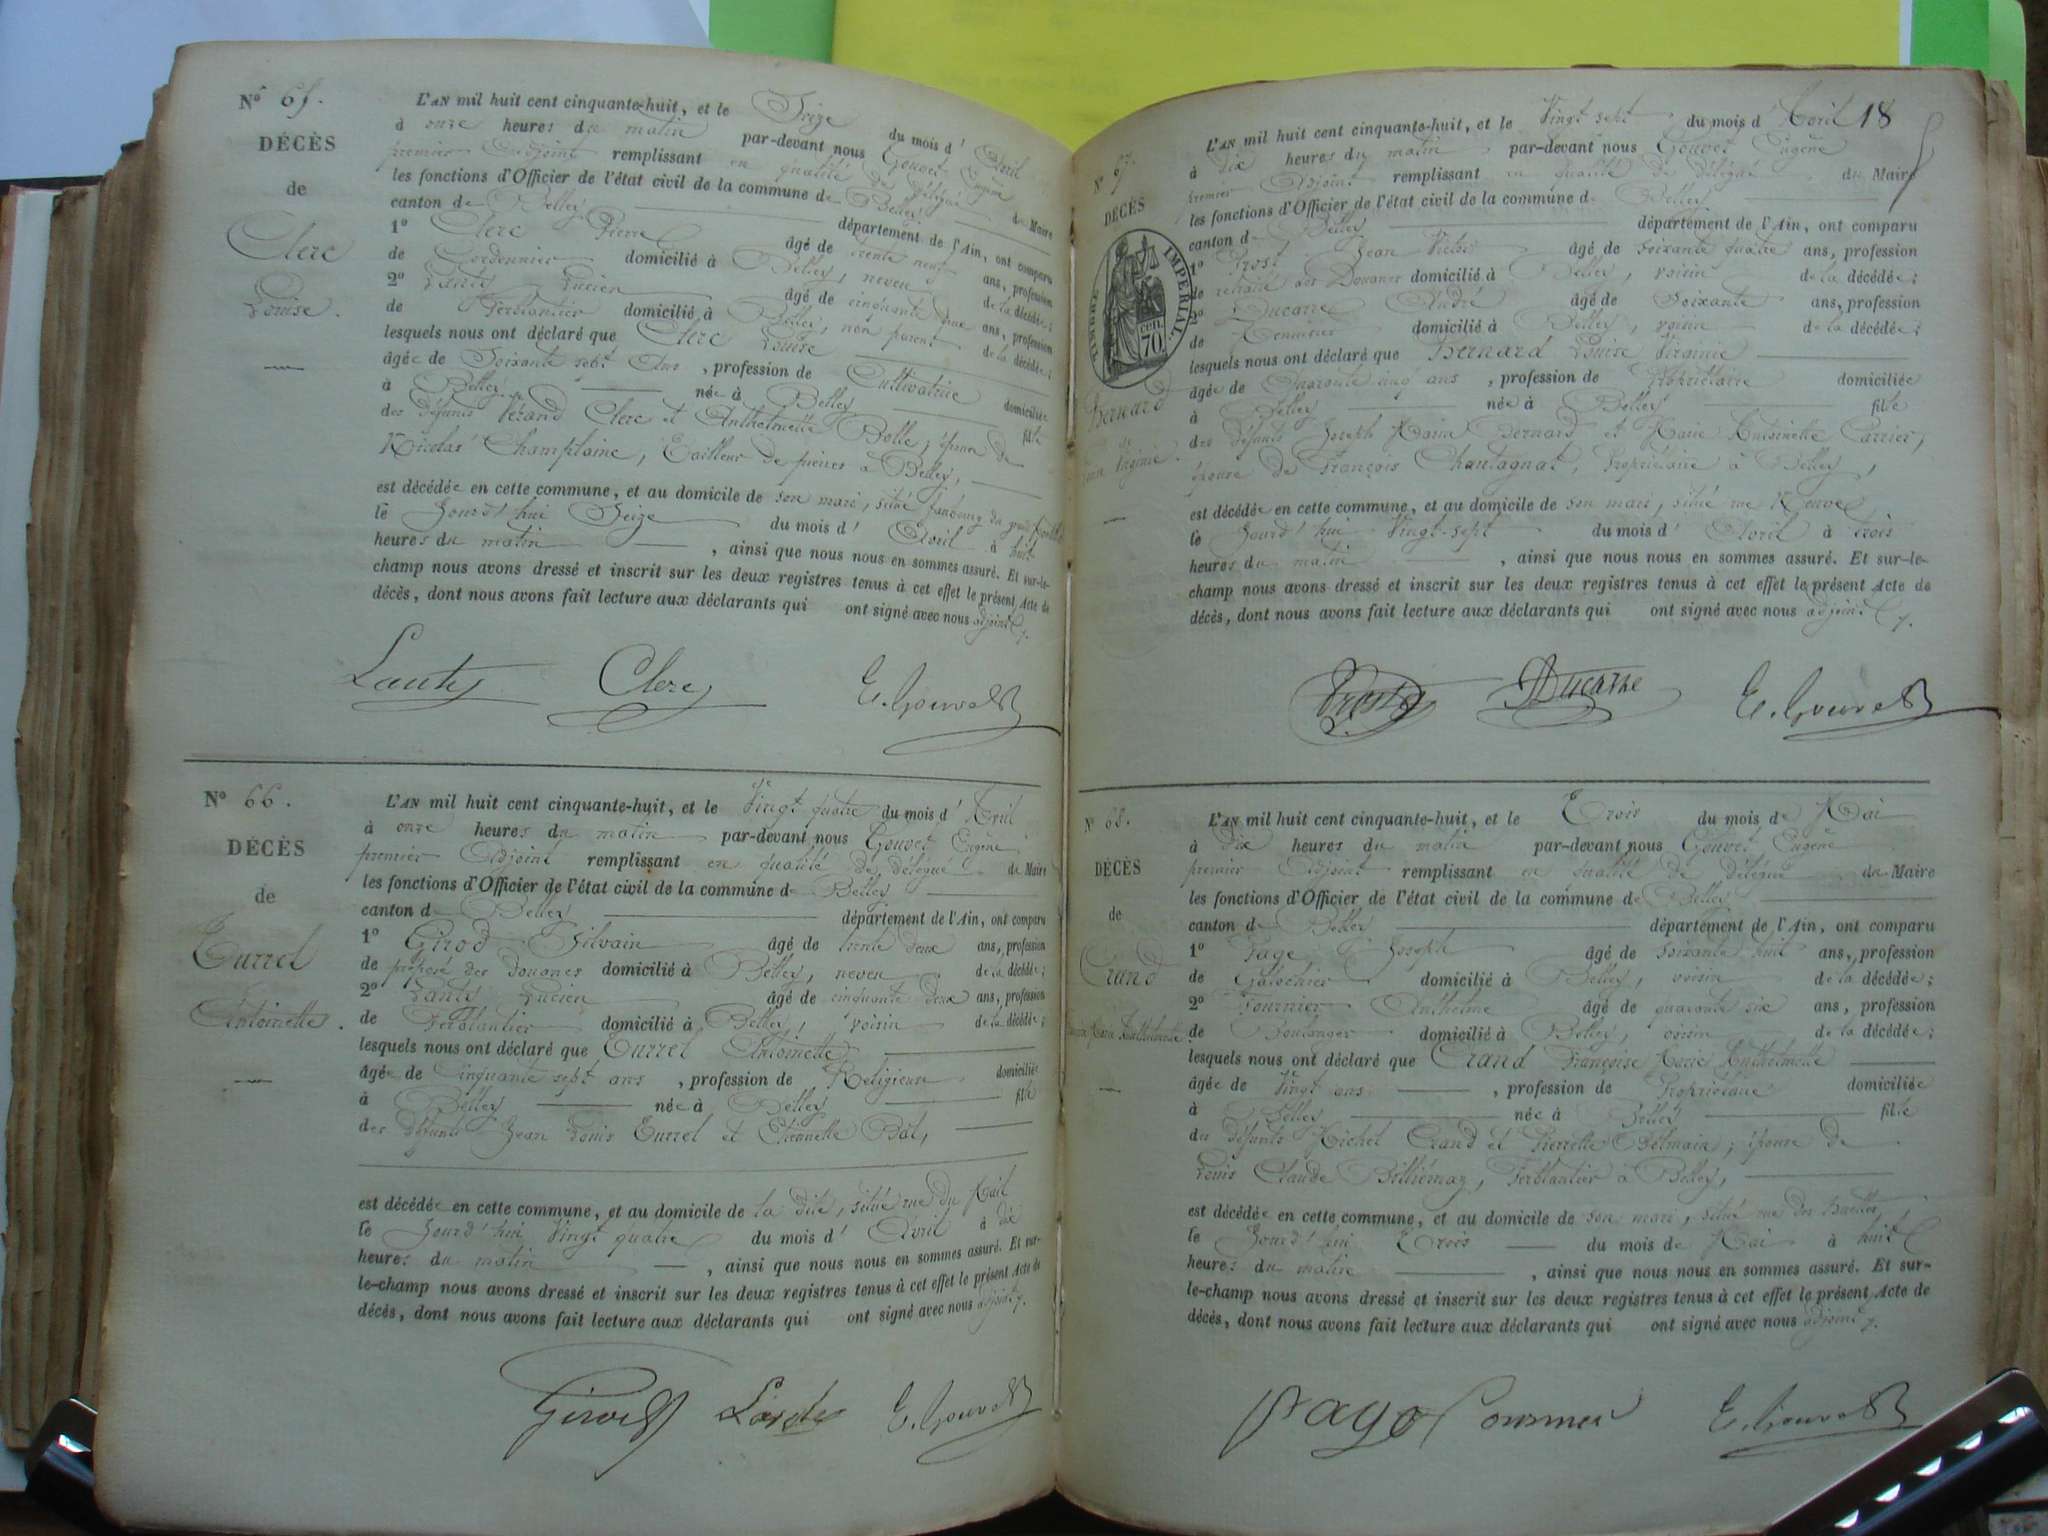 N° 65.
DÉCÈS
de
Clerc
Louise.
L'AN mil huit cent cinquante-huit, et le Seize du mois d' Avril
à onze heures du matin par-devant nous Gouvet Eugène
premier Adjoint remplissant en qualité de délégué du Maire
les fonctions d'Officier de l'état civil de la commune de Belley
canton de Belley département de l'Ain, ont comparu
1° Clerc Pierre âgé de trente neuf ans, profession
de Cordonnier domicilié à Belley, neveu de la décédée;
2° Lanty Lucien âgé de cinquante deux ans, profession
de Ferblantier domicilié à Belley, non parent de la décédée;
lesquels nous ont déclaré que Clerc Louise
âgée de Soixante sept ans, profession de Cultivatrice domiciliée
à Belley née à Belley fille
des défunts Clerc et Anthelmette Bolle; épouse de
Nicolas Champlaine, Tailleur de pierres à Belley,
est décédée en cette commune, et au domicile de son mari, situé faubourg du
le Jourd'hui Seize du mois d' Avril à huit
heures du matin, ainsi que nous nous en sommes assuré. Et sur-le-
champ nous avons dressé et inscrit sur les deux registres tenus à cet effet le présent Acte de
décès, dont nous avons fait lecture aux déclarants qui ont signé avec nous adjoint
Lanty Clerc E. Gouvet
N° 66.
DÉCÈS
de
Turrel
Antoinette.
L'AN mil huit cent cinquante-huit, et le Vingt quatre du mois d' Avril
à onze heures du matin par-devant nous Gouvet Eugène
premier Adjoint remplissant en qualité de délégué du Maire
les fonctions d'Officier de l'état civil de la commune de Belley
canton de Belley département de l'Ain, ont comparu
1° Girod Silvain âgé de trente deux ans, profession
de préposé des douanes domicilié à Belley, neveu de la décédée;
2° Lanty Lucien âgé de cinquante deux ans, profession
de Ferblantier domicilié à Belley, voisin de la décédée;
lesquels nous ont déclaré que Turrel Antoinette
âgée de Cinquante sept ans, profession de Religieuse domiciliée
à Belley née à Belley fille
des défunts Jean Louis Turrel et Etiennette Bal,
est décédée en cette commune, et au domicile de la dite, situé rue du Mail
le Jourd'hui Vingt quatre du mois d' Avril à dix
heures du matin, ainsi que nous nous en sommes assuré. Et sur-
le-champ nous avons dressé et inscrit sur les deux registres tenus à cet effet le présent Acte de
décès, dont nous avons fait lecture aux déclarants qui ont signé avec nous adjoint
Girod E. Gouvet
18
N° 67.
DÉCÈS
TIMBRE IMPÉRIAL
70 cen.
Bernard
Virginie.
L'AN mil huit cent cinquante-huit, et le Vingt sept du mois d' Avril
à dix heures du matin par-devant nous Gouvet Eugène
premier Adjoint remplissant en qualité de délégué du Maire
les fonctions d'Officier de l'état civil de la commune de Belley
canton de Belley département de l'Ain, ont comparu
1° Prost Jean Victor âgé de soixante quatre ans, profession
de retraité des Douanes domicilié à Belley, voisin de la décédée;
2° Ducarre André âgé de Soixante ans, profession
de domicilié à Belley, voisin de la décédée;
lesquels nous ont déclaré que Bernard Louise Virginie
âgée de Quarante ans, profession de Propriétaire domiciliée
à Belley née à Belley fille
des défunts Joseph Marie Bernard et Marie Antoinette Carrier,
épouse de François Chantagnat, Propriétaire à Belley,
est décédée en cette commune, et au domicile de son mari, situé rue Neuve
le Jourd'hui Vingt-sept du mois d' Avril à trois
heures du matin, ainsi que nous nous en sommes assuré. Et sur-le-
champ nous avons dressé et inscrit sur les deux registres tenus à cet effet le présent Acte de
décès, dont nous avons fait lecture aux déclarants qui ont signé avec nous adjoint
Prost Ducarre E. Gouvet
N° 68.
DÉCÈS
de
Crand
L'AN mil huit cent cinquante-huit, et le Trois du mois de Mai
à dix heures du matin par-devant nous Gouvet Eugène
premier Adjoint remplissant en qualité de délégué du Maire
les fonctions d'Officier de l'état civil de la commune de Belley
canton de Belley département de l'Ain, ont comparu
1° Page Joseph âgé de soixante huit ans, profession
de Galochier domicilié à Belley, voisin de la décédée;
2° Fournier Anthelme âgé de quarante six ans, profession
de Boulanger domicilié à Belley, voisin de la décédée;
lesquels nous ont déclaré que Crand Françoise Marie Anthelmette
âgée de Vingt ans, profession de Propriétaire domiciliée
à Belley née à Belley fille
des défunts Michel Crand et Pierrette Belmain; épouse de
Louis Claude Billiémaz, Ferblantier à Belley,
est décédée en cette commune, et au domicile de son mari, situé rue des
le Jourd'hui Trois du mois de Mai à huit
heures du matin, ainsi que nous nous en sommes assuré. Et sur-
le-champ nous avons dressé et inscrit sur les deux registres tenus à cet effet le présent Acte de
décès, dont nous avons fait lecture aux déclarants qui ont signé avec nous adjoint
E. Gouvet